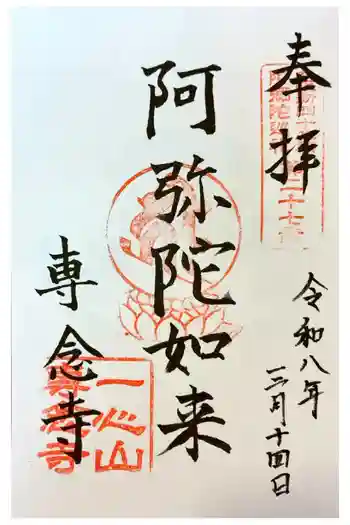 奉拝
令和八年
三月十四日
阿弥陀如来
専念寺
一心山
専念寺